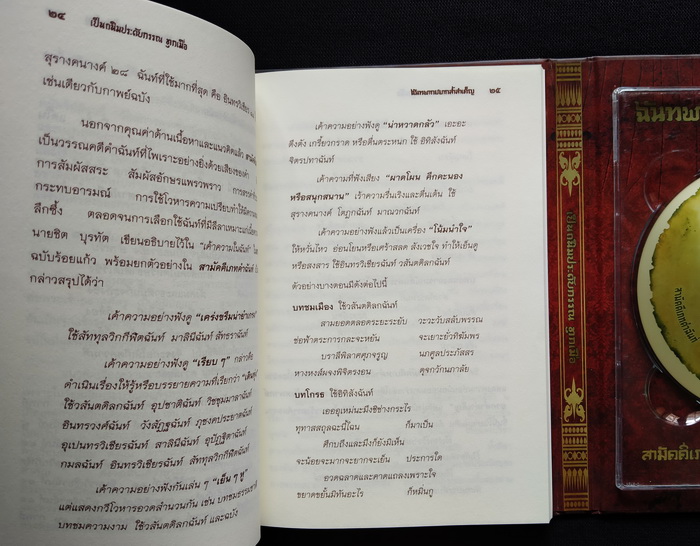 ๒๔ เป็นถนิมประดับกรรณ ทุกเมื่อ
สุรางคนางค์ ๒๘ ฉันท์ที่ใช้มากที่สุด คือ อินทรวิเชียร
เช่นเดียวกับกาพย์ฉบัง
นอกจากคุณค่าด้านเนื้อหาและแนวคิดแล้ว
เป็นวรรณคดีคำฉันท์ที่ไพเราะอย่างยิ่งด้วยเสียงของคำ
การสัมผัสสระ สัมผัสอักษรแพรวพราว
กระทบอารมณ์ การใช้โวหารความเปรียบทำให้
ลึกซึ้ง ตลอดจนการเลือกใช้ฉันท์ที่มีลีลาเหมาะ
นายชิต บุรทัต เขียนอธิบายไว้ใน "เค้าความในฉันท์"
ฉบับร้อยแก้ว พร้อมยกตัวอย่างใน สามัคคีเภทคำฉันท์
กล่าวสรุปได้ว่า
เค้าความอย่างฟังดู "เคร่งขรึมน่ายำเกรง"
ใช้สัททุลวิกกีฬิตฉันท์ มาลินีฉันท์ สัทธราฉันท์
เค้าความอย่างฟังดู "เรียบ ๆ"
ดำเนินเรื่องให้รู้หรือบรรยายความที่เรียกว่า
ใช้วสันตดิลกฉันท์ อุปชาติฉันท์ วิชชุมมาลาฉันท์
อินทรวงศ์ฉันท์ วังสัฏฐฉันท์ ภุชงคประยาตฉันท์
อุเปนทรวิเชียรฉันท์ สาลินีฉันท์ อุปัฏฐิตาฉันท์
กมลฉันท์ อินทรวิเชียรฉันท์ สัททุลวิกกีฬิตฉันท์
เค้าความอย่างฟังกันเล่น ๆ "เย็น ๆ หู"
แต่แสดงกวีโวหารอวดสำนวนกัน เช่น บทชมธรรมชาติ
บทชมความงาม ใช้วสันตดิลกฉันท์ และฉบัง
๒๕
เค้าความอย่างฟังดู "น่าหวาดกลัว" เอะอะ
ตึงตัง เกรี้ยวกราด หรือตื่นตระหนก ใช้ อีทิสังฉันท์
จิตรปทาฉันท์
เค้าความที่ฟังเสียง "ผาดโผน คึกคะนอง
หรือสนุกสนาน" เร้าความรื่นเริงและตื่นเต้น ใช้
สุรางคนางค์ โตฎกฉันท์ มาณวกฉันท์
เค้าความอย่างฟังแล้วเป็นเครื่อง "โน้มนำใจ"
ให้หวั่นไหว อ่อนโยนหรือเศร้าสลด สังเวชใจ ทำให้เอ็นดู
หรือสงสาร ใช้อินทรวิเชียรฉันท์ วสันตดิลกฉันท์
ตัวอย่างบางตอนมีดังต่อไปนี้
บทชมเมือง ใช้วสันตดิลกฉันท์
สามยอดตลอดระยะระยับ วะวะวับสลับพรรณ
ช่อฟ้าตระการกละจะหยัน จะเยาะยั่วทิฆัมพร
บราลีพิลาศศุภจรูญ นภศูลประภัสสร
หางหงส์ผจงพิจิตรงอน ดุจกวักนภาลัย
บทโกรธ ใช้อีทิสังฉันท์
เอออุเหม่นะมึงชิช่างกระไร
ทุทาสสถุลฉะนี้ไฉน ก็มาเป็น
ศึกบถึงและมึงก็ยังมิเห็น
จะน้อยจะมากจะยากจะเย็น ประการใด
อวดฉลาดและคาดแถลงเพราะใจ
ขยาดขยั้นมิทันอะไร ก็หมิ่นกู
เป็นถนิมประดับกรรณ ทุกเมื่อ
สามัคคีเภทคำฉันท์